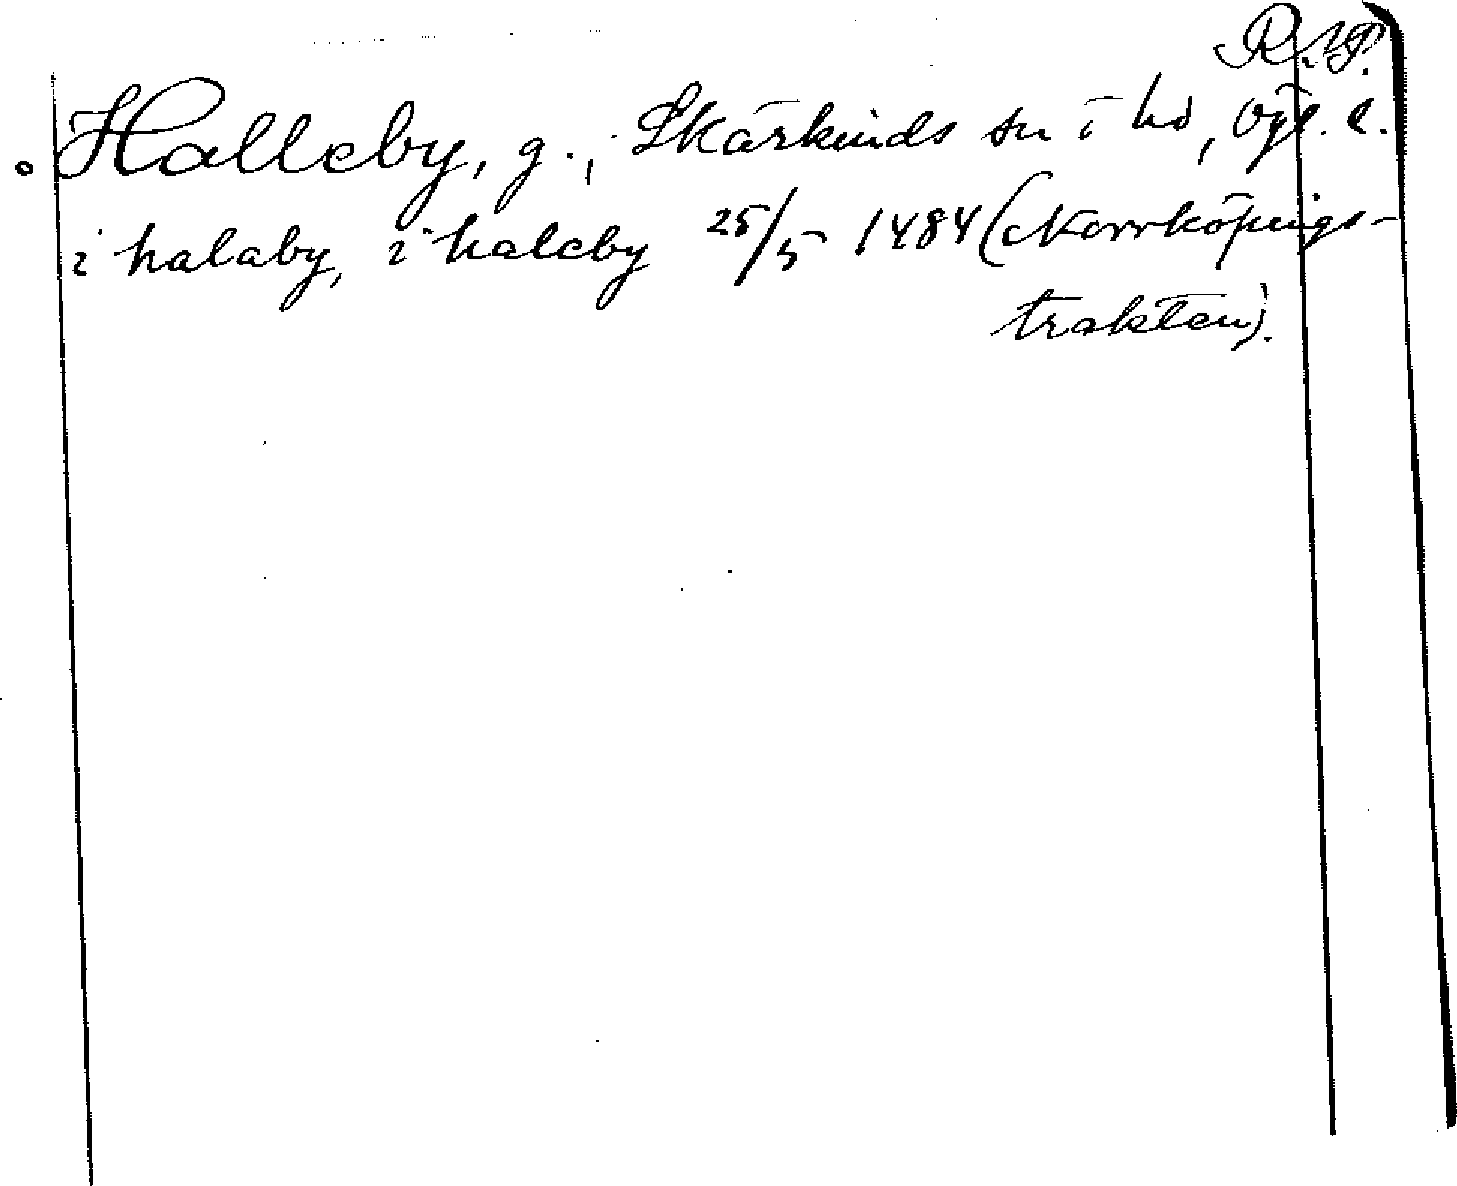 Halleby, g., Skärkinds sn o hd, Ögl. l.
i halaby, i haleby 25/5 1484 (Norrköpings-
trakten).